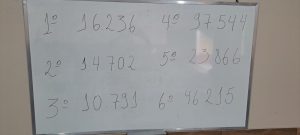 1º 16.236 4º 97.544
2º 14.702 5º 23.866
3º 10.791 6º 46.215